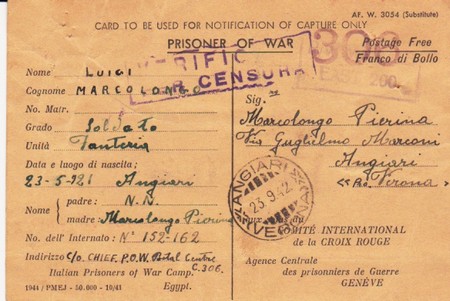 AF. W. 3054 (Substitute)
CARD TO BE USED FOR NOTIFICATION OF CAPTURE ONLY
PRISONER OF WAR
Postage Free
Franco di Bollo
306
VERIFIC
CENSURA
Nome LUIGI
Cognome MARCOLONGO
No. Matr.
Grado Soldato
Unità Fanteria
Data e luogo di nascita:
23-5-921 Angiari
Nome padre: N.N.
madre: Marcolongo Pierina
No. dell' Internato: N° 152-162
Indirizzo C/o CHIEF P.O.W. Postal Centre
Italian Prisoners of War Camp. C.306.
1944 / PMEJ - 50.000 - 10/41 Egypt.
Sig.
Marcolongo Pierina
Via Guglielmo Marconi
Angiari
(Pro. Verona)
ANGIARI
23.9.42
VERONA
COMITÉ INTERNATIONAL
de la CROIX ROUGE
Agence Centrale
des prisonniers de Guerre
GENÈVE